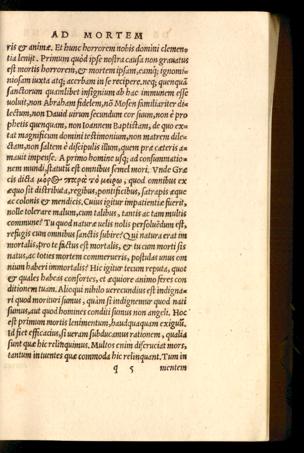 AD MORTEM
ris & animæ. Et hunc horrorem nobis domini clemen-
tia lenijt. Primum quòd ipse nostra causa non grauatus
est mortis horrorem, & mortem ipsam, eamq; ignomi-
niosam iuxta atq; acerbam in se recipere, neq; quenquã
sanctorum quamlibet insignium ab hac immunem esse
uoluit, non Abraham fidelem, nõ Mosen familiariter di-
lectum, non Dauid uirum secundum cor suum, non è pro
phetis quenquam, non Ioannem Baptistam, de quo ex-
tat magnificum domini testimonium, non matrem dile-
ctam, non saltem è discipulis illum, quem præ cæteris a-
mauit impense. A primo homine usq; ad consummatio-
nem mundi, statutũ est omnibus semel mori. Vnde Græ-
cis dicta μόρος παρὰ τὸ μείρω, quod omnibus ex
æquo sit distributa, regibus, pontificibus, satrapis æque
ac colonis & mendicis. Cuius igitur impatientiæ fuerit,
nolle tolerare malum, cum talibus, tantis ac tam multis
commune? Tu quod naturæ uelis nolis persoluẽdum est,
refugis cum omnibus sanctis subire? Qui natura erat im
mortalis, pro te factus est mortalis, & tu cum morti sis
natus, ac toties mortem commerueris, postulas unus om
nium haberi immortalis? Hic igitur tecum reputa, quot
& quales habeas consortes, et æquiore animo feres con
ditionem tuam. Alioqui nihilo uerecundius est indigna-
ri quod morituri sumus, quàm si indignemur quod nati
sumus, aut quod homines conditi sumus non angeli. Hoc
est primum mortis lenimentum, haudquaquam exiguũ.
Id fiet efficacius, si ueram subducamus rationem, qualia
sunt quæ hic relinquimus. Multos enim discruciat mors,
tantum intuentes quæ commoda hic relinquant. Tum in
q 5 mentem